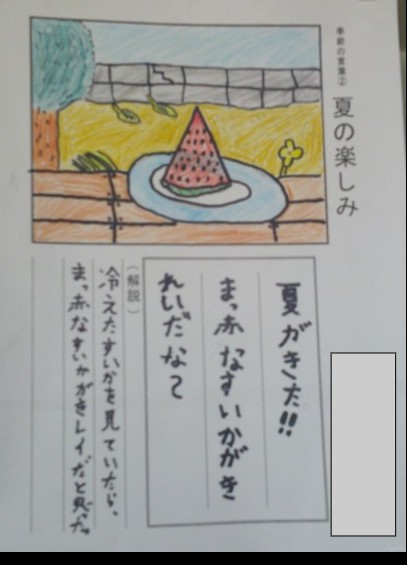 季節の言葉②
夏の楽しみ
夏がきた!!
まっ赤なすいかがき
れいだなぁ
(解説)
冷えたすいかを見ていたら、
まっ赤なすいかがきレイだと思った。